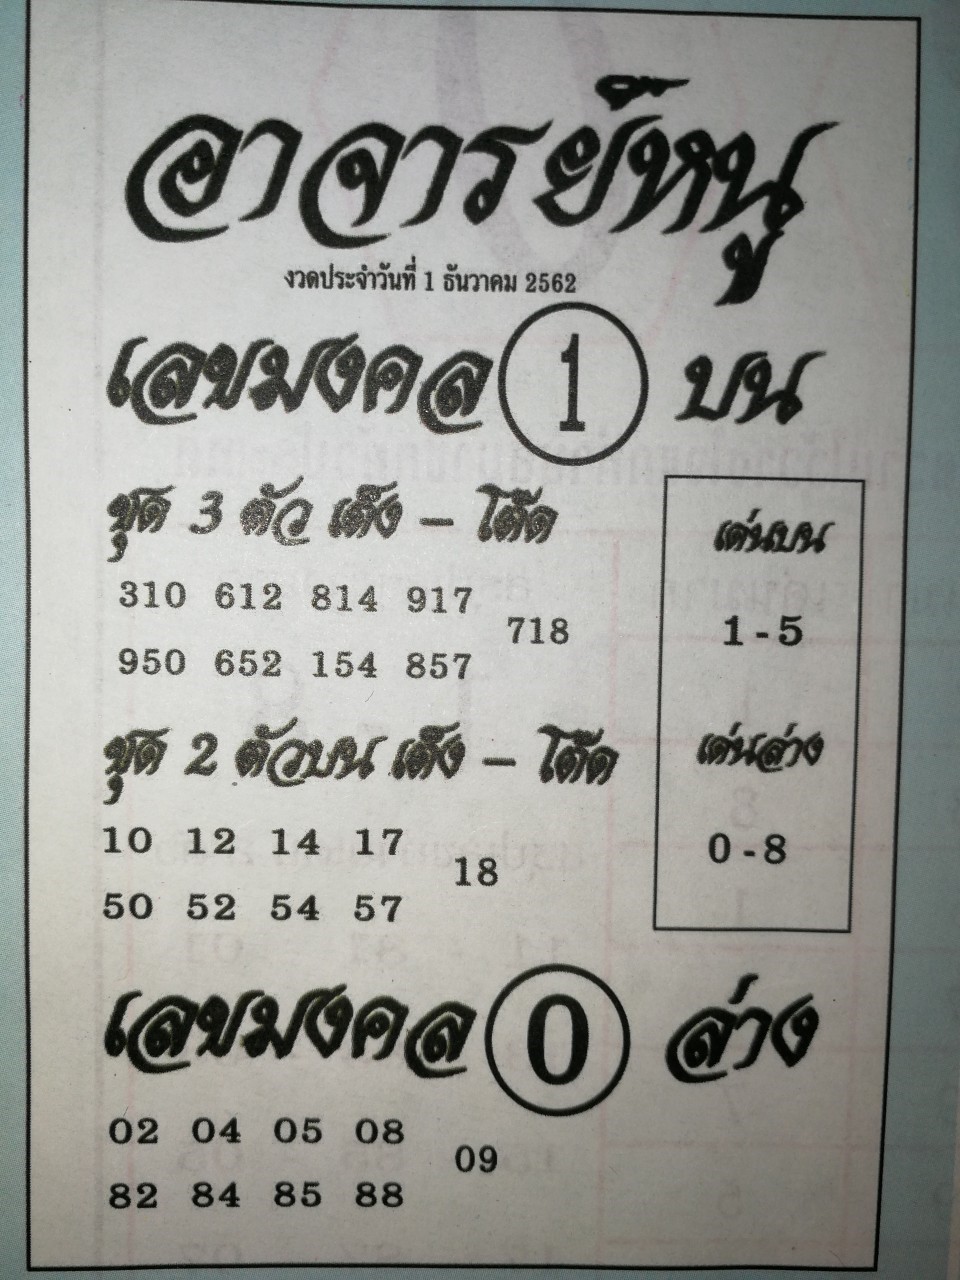 อาจารย์หนู
งวดประจำวันที่ 1 ธันวาคม 2562
เลขมงคล 1 บน
ชุด 3 ตัว เต็ง – โต๊ด
310 612 814 917
718
950 652 154 857
เด่นบน
1 - 5
ชุด 2 ตัวบน เต็ง – โต๊ด
10 12 14 17
18
50 52 54 57
เด่นล่าง
0 - 8
เลขมงคล 0 ล่าง
02 04 05 08
09
82 84 85 88